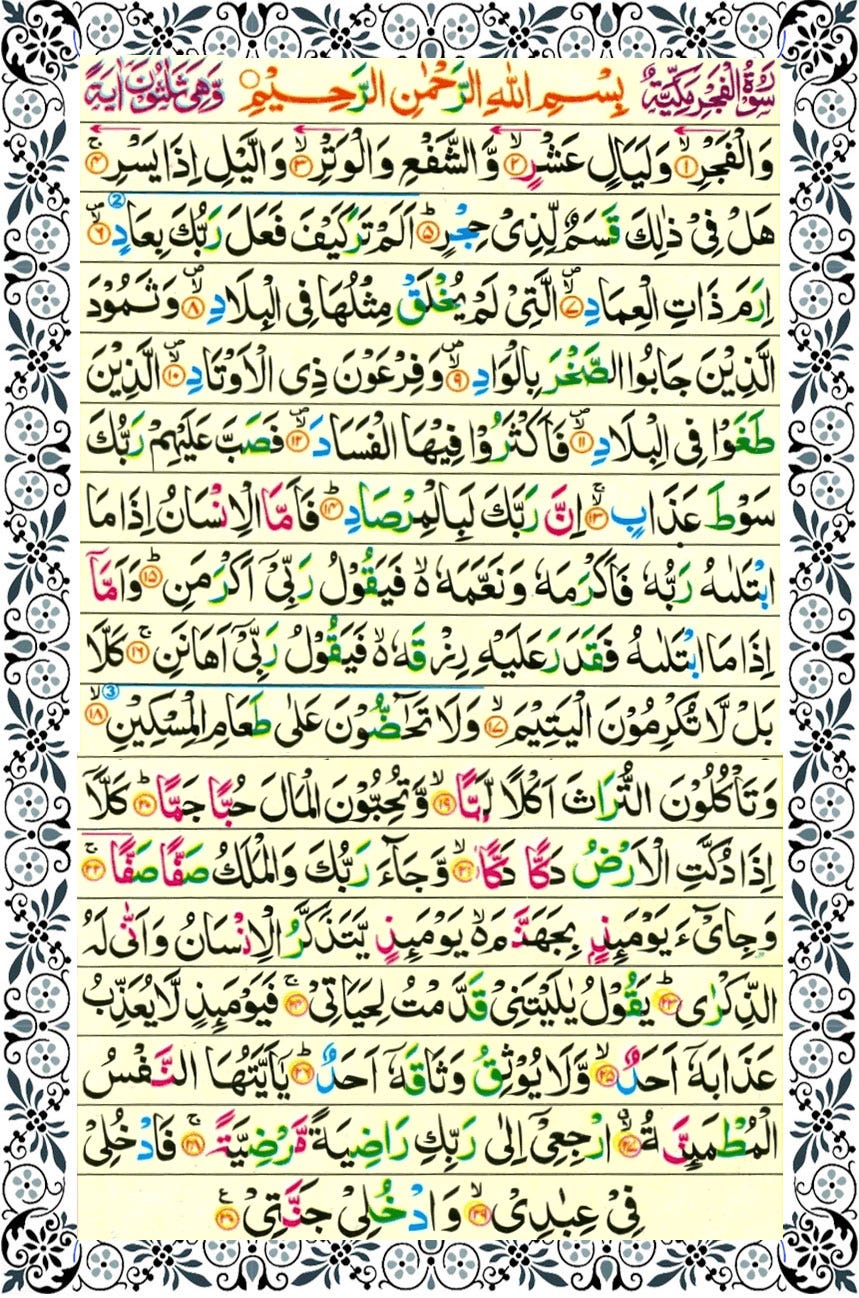 سُوْرَةُ الْفَجْرِ مَكِّيَّةٌ بِسْمِ اللّٰهِ الرَّحْمٰنِ الرَّحِيْمِ وَّهِيَ ثَلٰثُوْنَ اٰيَةً
وَالْفَجْرِۙ۝۱ وَلَيَالٍ عَشْرٍۙ۝۲ وَّالشَّفْعِ وَالْوَتْرِۙ۝۳ وَالَّيْلِ اِذَا يَسْرِۚ۝۴
هَلْ فِيْ ذٰلِكَ قَسَمٌ لِّذِيْ حِجْرٍؕ۝۵ اَلَمْ تَرَ كَيْفَ فَعَلَ رَبُّكَ بِعَادٍ۪ۙ۝۶
اِرَمَ ذَاتِ الْعِمَادِ۪ۙ۝۷ الَّتِيْ لَمْ يُخْلَقْ مِثْلُهَا فِي الْبِلَادِ۪ۙ۝۸ وَثَمُوْدَ
الَّذِيْنَ جَابُوا الصَّخْرَ بِالْوَادِ۪ۙ۝۹ وَفِرْعَوْنَ ذِي الْاَوْتَادِ۪ۙ۝۱۰ الَّذِيْنَ
طَغَوْا فِي الْبِلَادِ۪ۙ۝۱۱ فَاَكْثَرُوْا فِيْهَا الْفَسَادَ۪ۙ۝۱۲ فَصَبَّ عَلَيْهِمْ رَبُّكَ
سَوْطَ عَذَابٍۚۙ۝۱۳ اِنَّ رَبَّكَ لَبِالْمِرْصَادِؕ۝۱۴ فَاَمَّا الْاِنْسَانُ اِذَا مَا
ابْتَلٰىهُ رَبُّهٗ فَاَكْرَمَهٗ وَنَعَّمَهٗ ۙ۬ فَيَقُوْلُ رَبِّيْۤ اَكْرَمَنِؕ۝۱۵ وَاَمَّاۤ
اِذَا مَا ابْتَلٰىهُ فَقَدَرَ عَلَيْهِ رِزْقَهٗ ۙ۬ فَيَقُوْلُ رَبِّيْۤ اَهَانَنِۚ۝۱۶ كَلَّا
بَلْ لَّا تُكْرِمُوْنَ الْيَتِيْمَۙ۝۱۷ وَلَا تَحٰٓضُّوْنَ عَلٰى طَعَامِ الْمِسْكِيْنِۙ۝۱۸
وَتَاْكُلُوْنَ التُّرَاثَ اَكْلًا لَّمًّاۙ۝۱۹ وَّتُحِبُّوْنَ الْمَالَ حُبًّا جَمًّاؕ۝۲۰ كَلَّاۤ
اِذَا دُكَّتِ الْاَرْضُ دَكًّا دَكًّاۙ۝۲۱ وَّجَآءَ رَبُّكَ وَالْمَلَكُ صَفًّا صَفًّاۚ۝۲۲
وَجِايْٓءَ يَوْمَىِٕذٍۭ بِجَهَنَّمَ ۙ۬ يَوْمَىِٕذٍ يَّتَذَكَّرُ الْاِنْسَانُ وَاَنّٰى لَهُ
الذِّكْرٰىؕ۝۲۳ يَقُوْلُ يٰلَيْتَنِيْ قَدَّمْتُ لِحَيَاتِيْۚ۝۲۴ فَيَوْمَىِٕذٍ لَّا يُعَذِّبُ
عَذَابَهٗۤ اَحَدٌۙ۝۲۵ وَّلَا يُوْثِقُ وَثَاقَهٗۤ اَحَدٌؕ۝۲۶ يٰۤاَيَّتُهَا النَّفْسُ
الْمُطْمَىِٕنَّةُۗۙ۝۲۷ ارْجِعِيْۤ اِلٰى رَبِّكِ رَاضِيَةً مَّرْضِيَّةًۚ۝۲۸ فَادْخُلِيْ
فِيْ عِبٰدِيْۙ۝۲۹ وَادْخُلِيْ جَنَّتِيْ۠۝۳۰